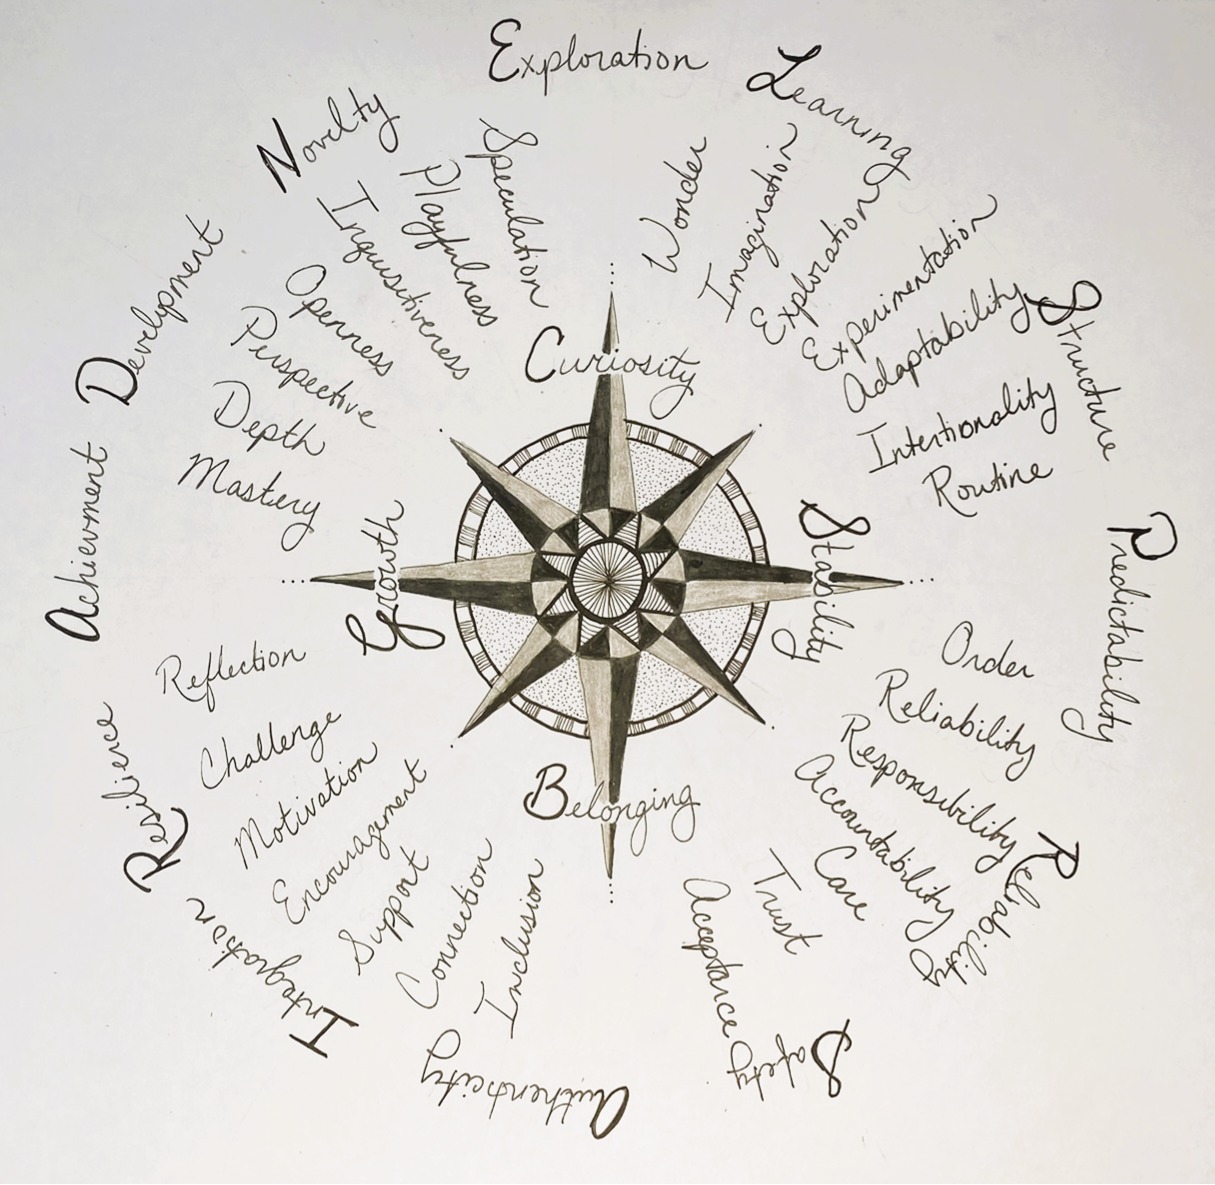 Exploration
Learning
Structure
Predictability
Reliability
Safety
Authenticity
Integration
Resilience
Achievment
Development
Novelty
Wonder
Imagination
Exploration
Experimentation
Adaptability
Intentionality
Routine
Order
Reliability
Responsibility
Accountability
Care
Trust
Acceptance
Inclusion
Connection
Support
Encouragement
Motivation
Challenge
Reflection
Mastery
Depth
Perspective
Openness
Inquisitiveness
Playfulness
Speculation
Curiosity
Stability
Belonging
Growth